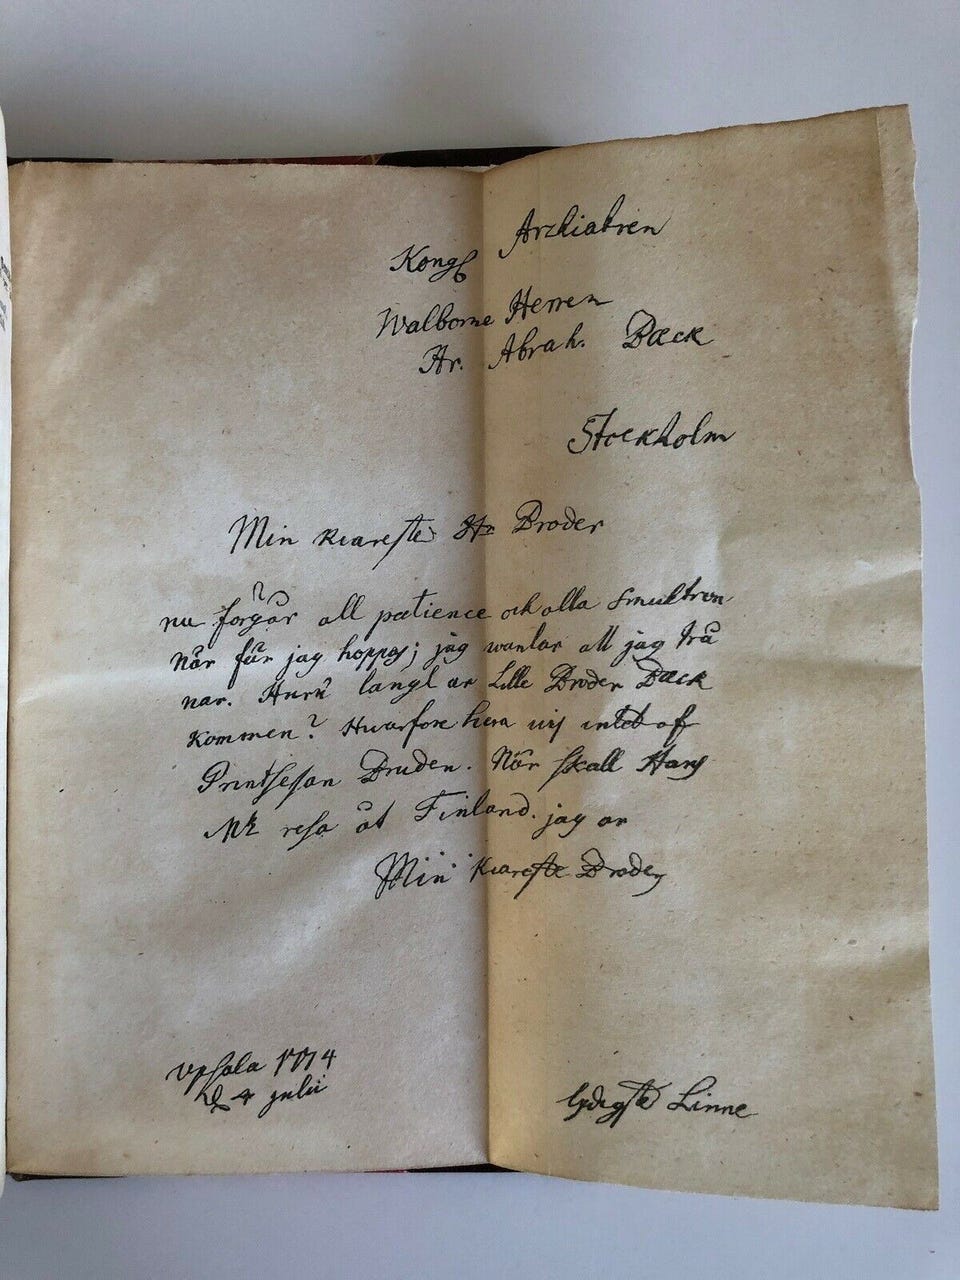 Kongl Archiatren
Walborne Herren
Hr. Abrah. Bæck
Stockholm
Min kiareste Hr Broder
nu förgår all patience och alla smultron
när får jag hoppas; jag wäntar att jag trå
nar. Huru langt ar Lille Broder Bæck
kommen? Hwarfore hora wij intet af
Printsessan Bruden. När skall Hans
Mt resa åt Finland. jag ar
Min kiareste Broders
Upsala 1774
d 4 julii
lydigste Linne